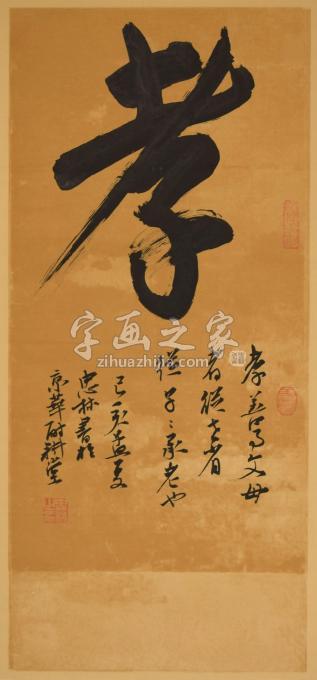 孝
孝善事父母
者从老省
从子子承老也
己亥孟夏
忠林書於
京華耐耕堂
字画之家
zihuazhijia.com